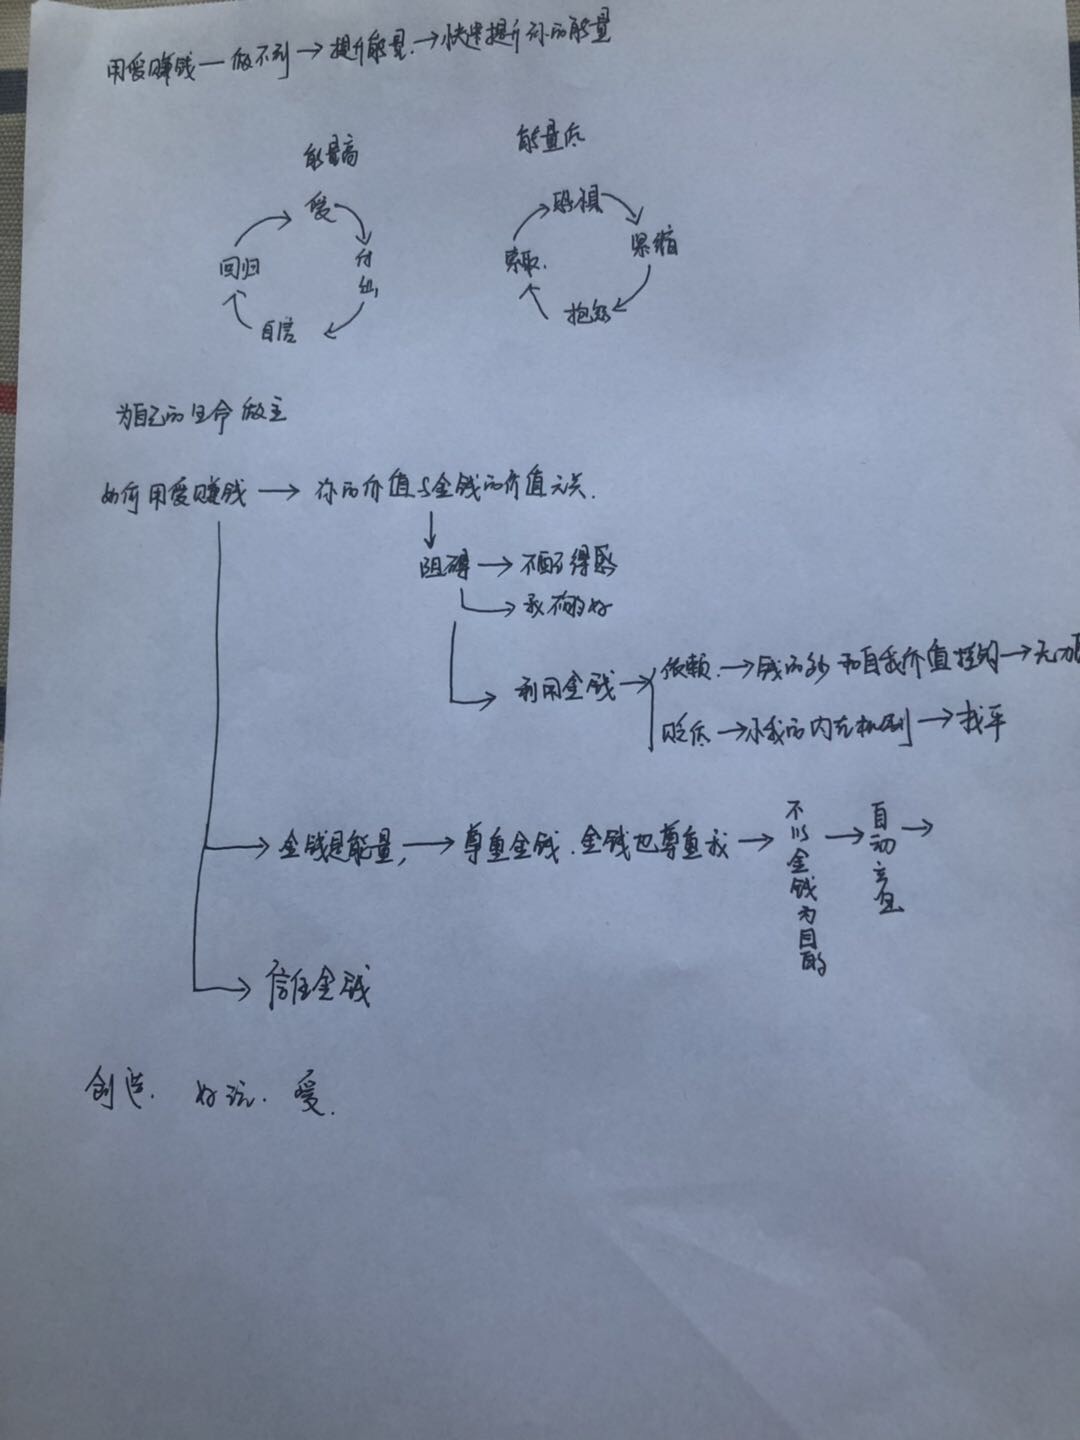 用爱赚钱—做不到→提升能量.→快速提升你的能量
能量高
能量低
爱
付出
自信
回归
恐惧
紧缩
抱怨
索取.
为自己的生命做主
如何用爱赚钱→你的价值与金钱的价值无关.
阻碍→不配得感
→我不够好
→利用金钱→依赖.→钱的多少和自我价值挂钩→无力
贬低→小我的内在机制→找平
→金钱是能量,→尊重金钱.金钱也尊重我→不以金钱为目的→自动→
→信任金钱
创造. 好玩. 爱.